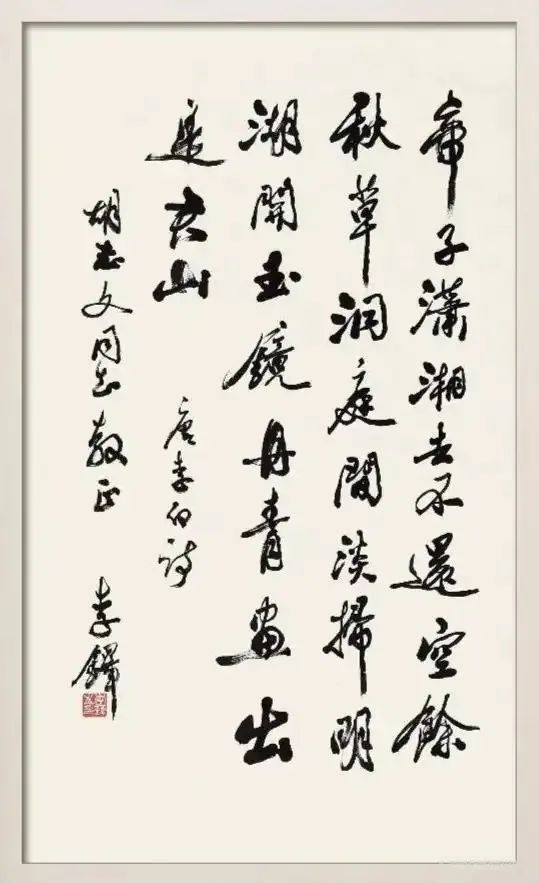 帝子潇湘去不還空餘
秋草洞庭間淡掃明
湖開玉鏡丹青畫出
是君山
唐李白詩
胡志文同志教正
李鐸